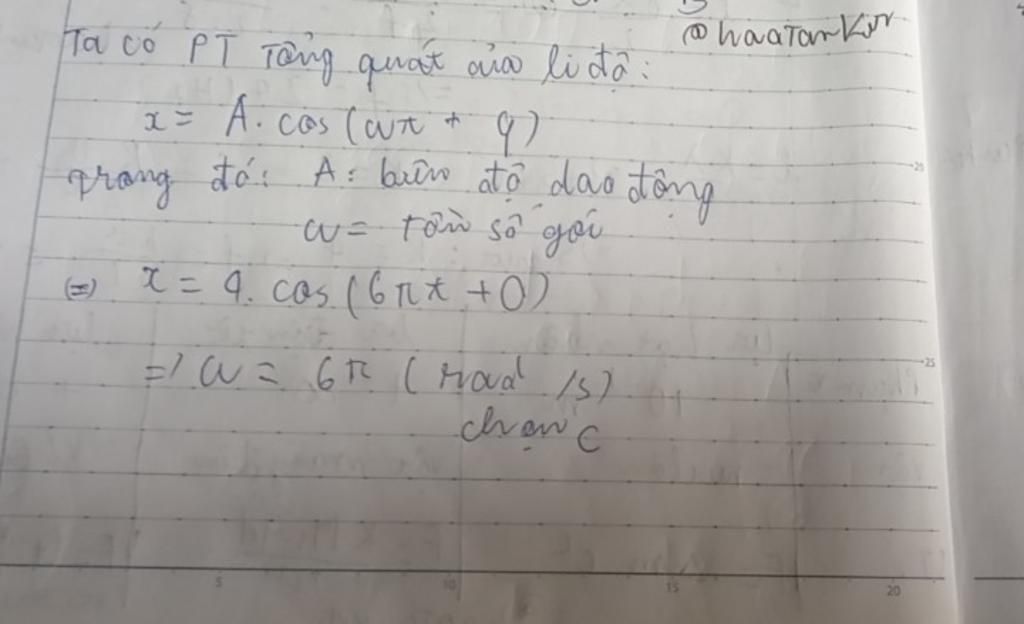 @haaTanKur
Ta có PT Tổng quát của li độ:
x = A. cos (ωt + φ)
trong đó: A: biên độ dao động
ω = tần số góc
(=) x = 4. cos (6πt + 0)
=> ω = 6π (rad /s)
chọn C
25
5 10 15 20